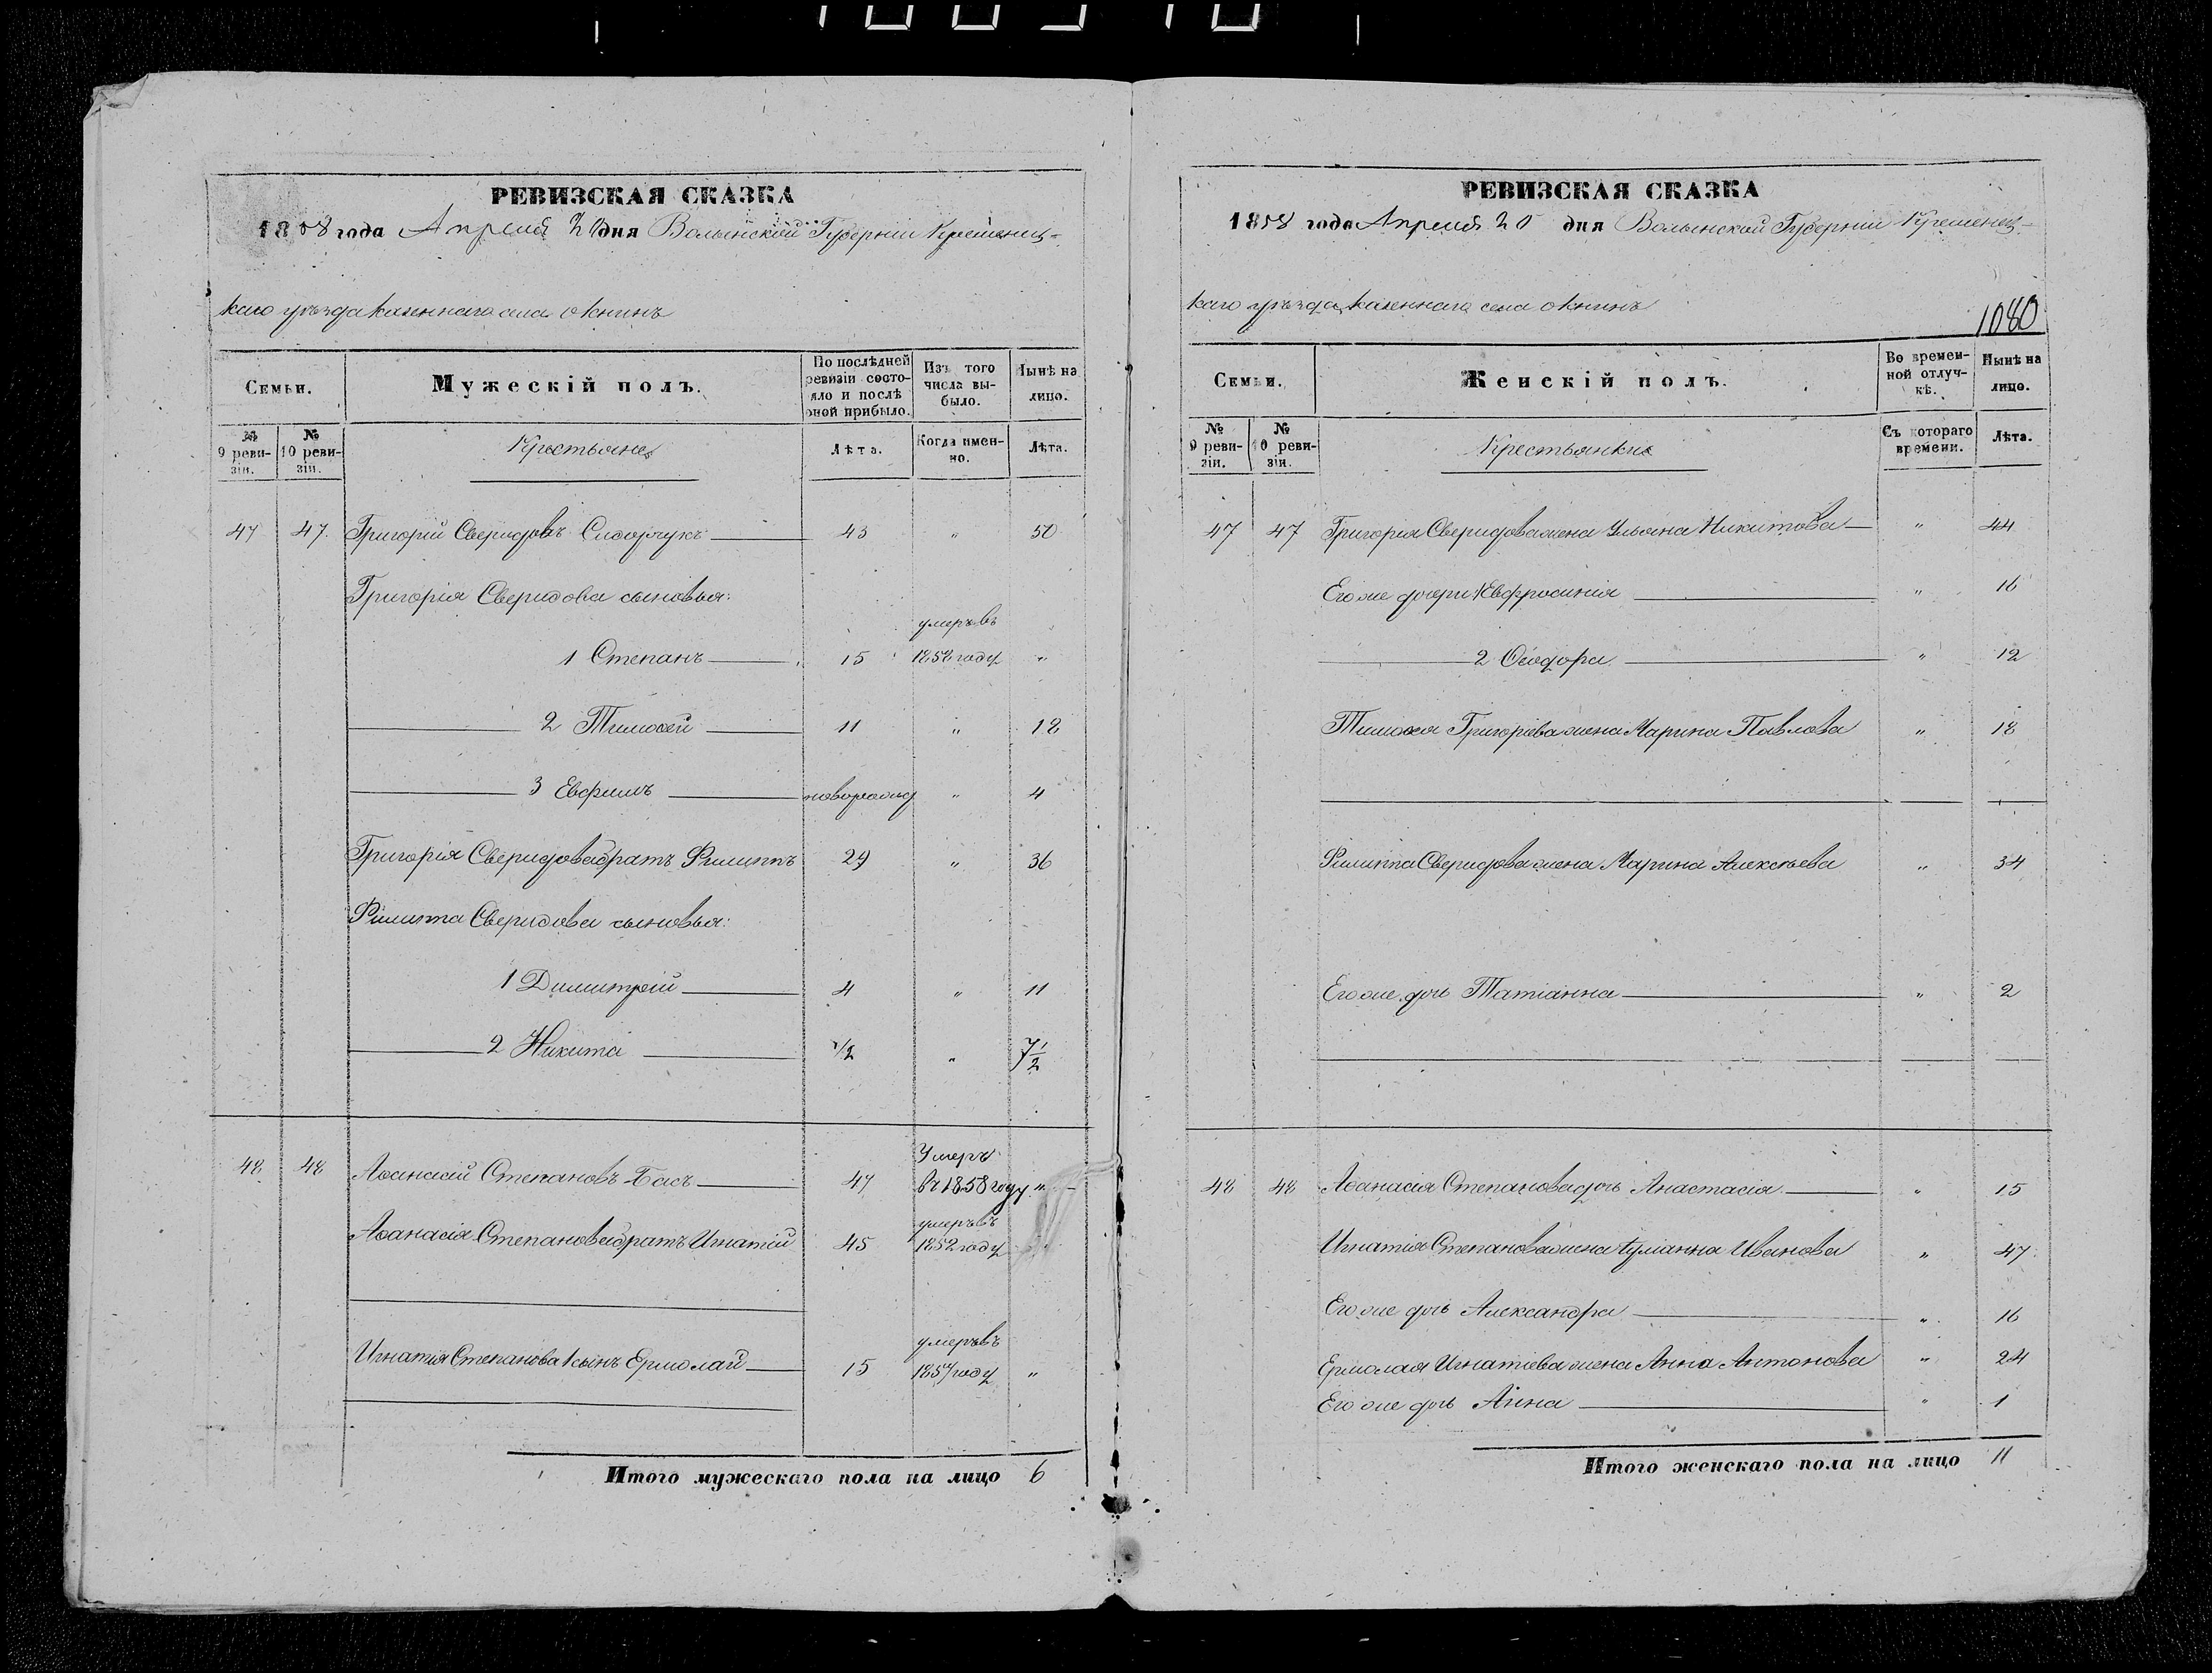 РЕВИЗСКАЯ СКАЗКА
1858 года Апреля 20 дня Волынской Губерніи Кременец-
каго уѣзда казеннаго села Окнинъ
Семьи.
Мужескій полъ.
По послѣдней ревизіи состо-
яло и послѣ оной прибыло.
Изъ того числа вы-
было.
Нынѣ на лицо.
№ 9 реви-
зіи.
№ 10 реви-
зіи.
Крестьяне
Лѣта.
Когда имен-
но.
Лѣта.
47 47. Григорій Свиридовъ Сидорчукъ 43 " 50
Григорія Свиридова сыновья:
умеръ въ
1 Степанъ 15 1858 году "
2 Тимоѳей 11 " 18
3 Евфимъ новорожд " 4
Григорія Свиридова братъ Филиппъ 29 " 36
Филиппа Свиридова сыновья:
1 Димитрій 4 " 11
2 Никита 1/2 " 7 1/2
Умеръ
48 48 Аѳанасій Степановъ Басъ 47 въ 1858 году "
умеръ въ
Аѳанасія Степанова братъ Игнатій 45 1852 году "
умеръ въ
Игнатія Степанова 1 сынъ Ермолай 15 1857 году "
Итого мужескаго пола на лицо 6
РЕВИЗСКАЯ СКАЗКА
1858 года Апреля 20 дня Волынской Губерніи Кременец-
каго уѣзда, казеннаго села Окнинъ
1080
Семьи.
Женскій полъ.
Во времен-
ной отлуч-
кѣ.
Нынѣ на лицо.
№ 9 реви-
зіи.
№ 10 реви-
зіи.
Крестьянки
Съ котораго времени.
Лѣта.
47 47 Григорія Свиридова жена Ульяна Никитова " 44
Его же дочери 1 Евфросинія " 16
2 Ѳеодора " 12
Тимоѳея Григоріева жена Марина Павлова " 18
Филиппа Свиридова жена Марина Алексѣева " 34
Его же дочь Татіанна " 2
48 48 Аѳанасія Степанова дочь Анастасія " 15
Игнатія Степанова жена Іуліанна Иванова " 47
Его же дочь Александра " 16
Ермолая Игнатіева жена Анна Антонова " 24
Его же дочь Анна " 1
Итого женскаго пола на лицо 11